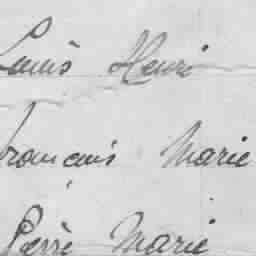 Louis Henri
François Marie
Pierre Marie